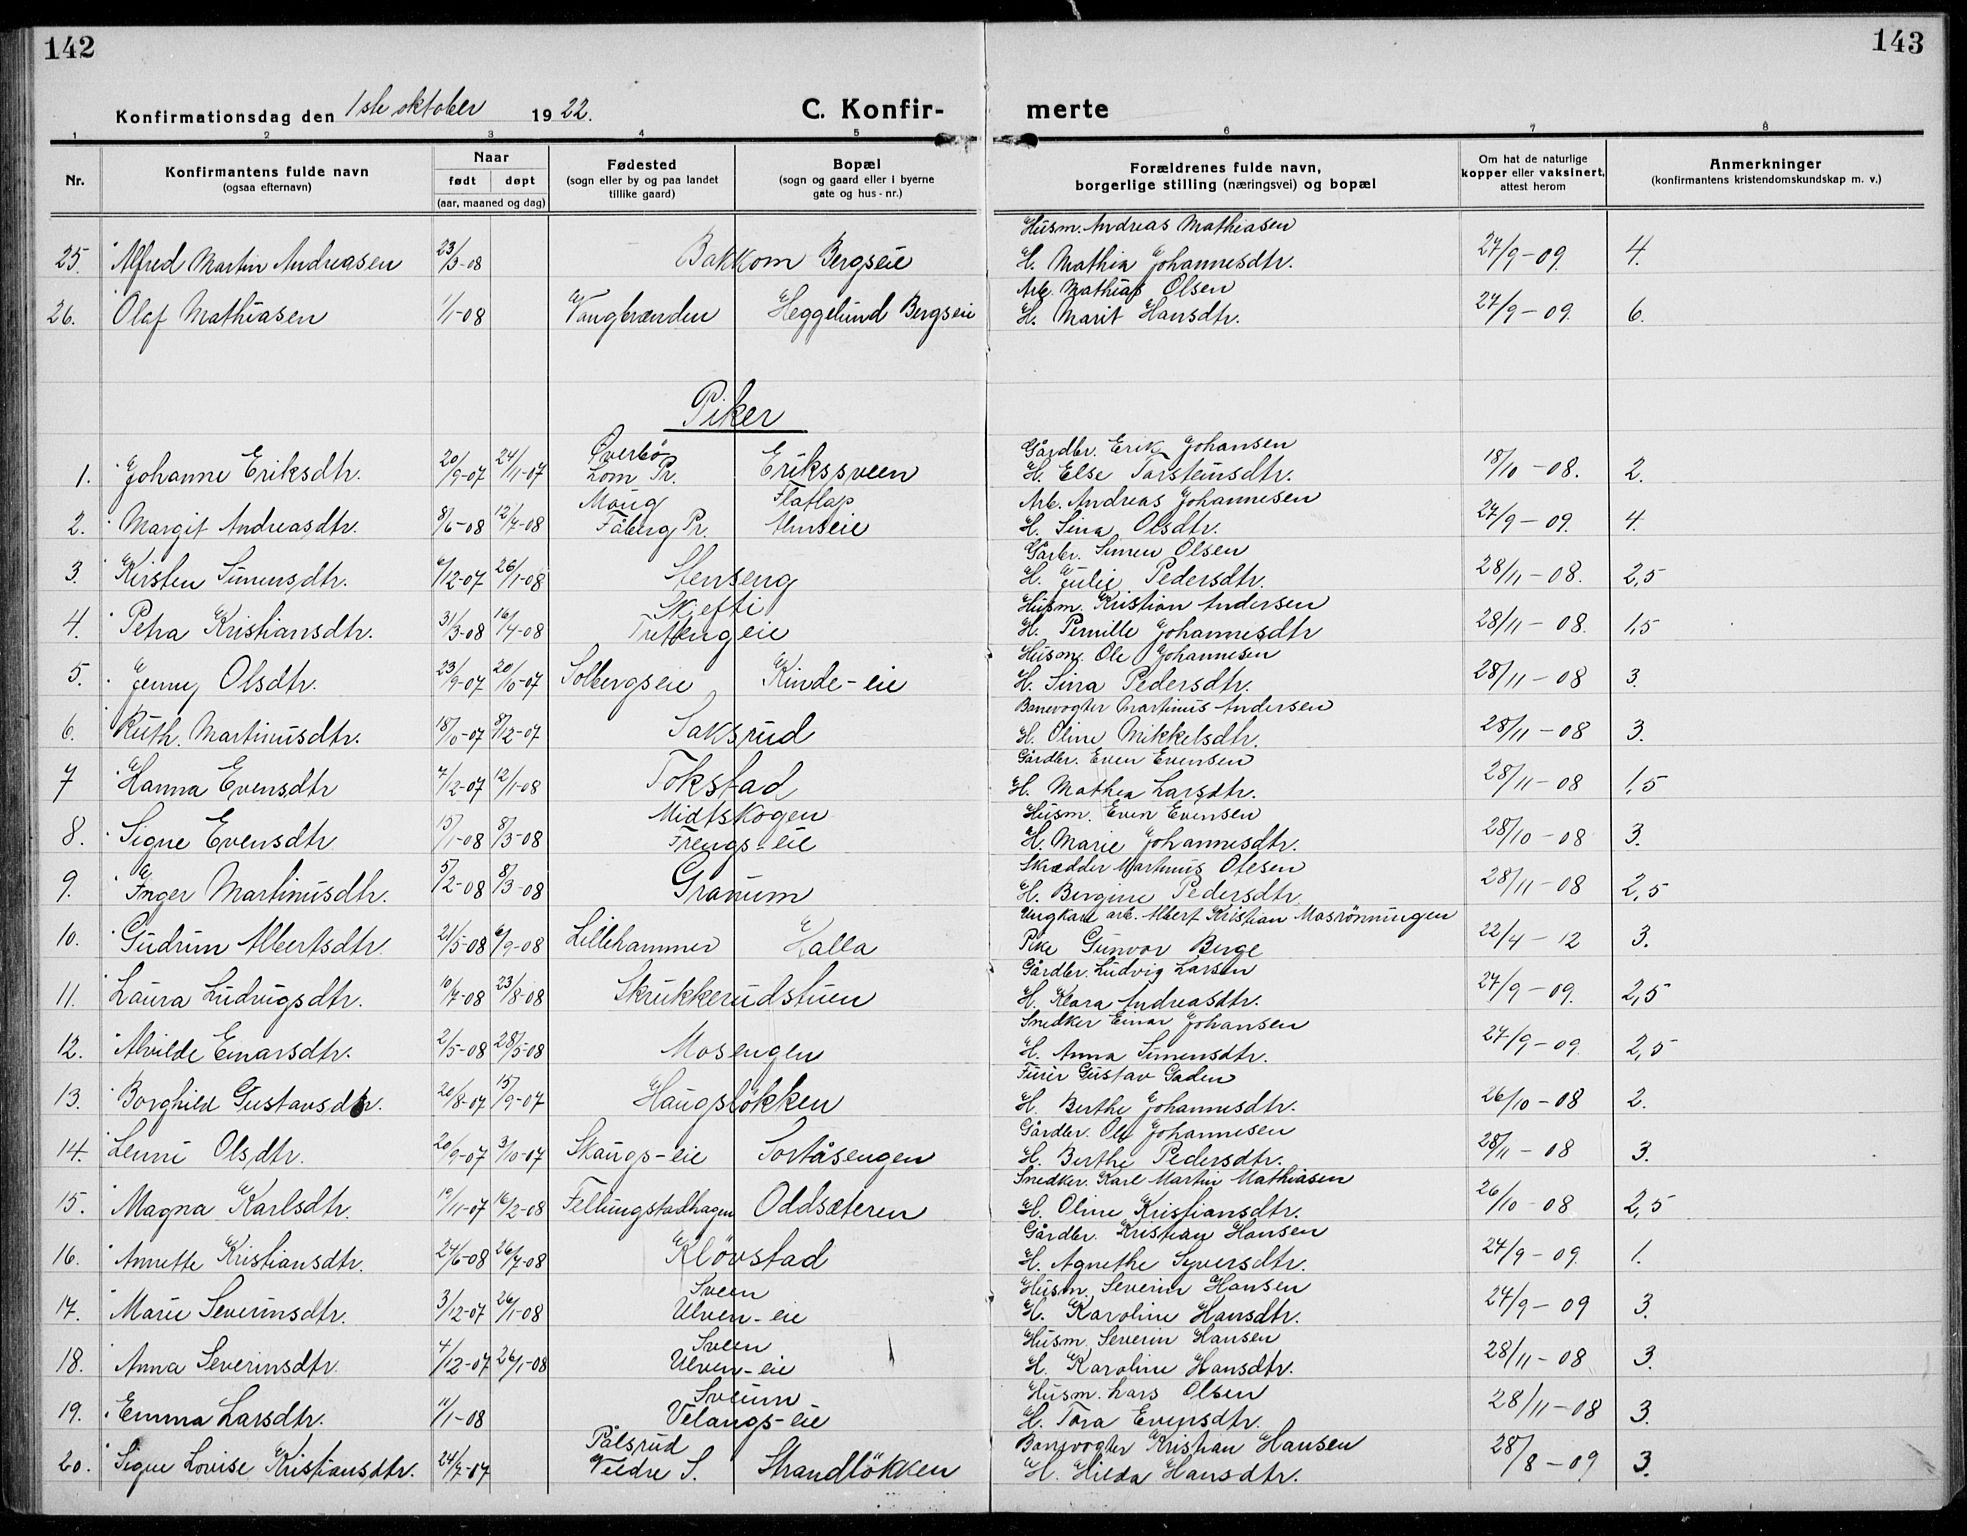 142
143
Konfirmationsdag den 1ste oktober 1922.
C. Konfir-
merte
1 2 3 4 5 6 7 8
Nr. Konfirmantens fulde navn (ogsaa efternavn) Naar født døpt (aar, maaned og dag) Fødested (sogn eller by og paa landet tillike gaard) Bopæl (sogn og gaard eller i byerne gate og hus-nr.) Forældrenes fulde navn, borgerlige stilling (næringsvei) og bopæl Om hat de naturlige kopper eller vaksinert, attest herom Anmerkninger (konfirmantens kristendomskundskap m. v.)
Husm. Andreas Mathiasen
25. Alfred Martin Andreasen 23/3-08 Bakkom Bergseie H. Mathia Johannesdtr. 27/9-09. 4.
Arb. Mathias Olsen
26. Olaf Mathiasen 1/1-08 Vangbrænden Heggelund Bergseie H. Marit Hansdtr. 27/9-09. 6.
Piker
Øverbø Gårdbr. Erik Johansen
1. Johanne Eriksdtr. 20/9-07 24/11-07 Lom Pr. Erikssveen H. Else Torsteinsdtr. 18/10-08. 2.
Moug Flatlap Arb. Andreas Johannesen
2. Margit Andreasdtr. 8/6-08 12/7-08 Fåberg Pr. H. Sina Olsdtr. 27/9-09. 4.
Gårbr. Simen Olsen
3. Kirsten Simensdtr. 6/12-07 26/1-08 Stenseng H. Julie Pedersdtr. 28/11-08. 2,5
Skjefti Husm. Kristian Andersen
4. Petra Kristiansdtr. 31/3-08 16/4-08 Trettengeie H. Pernille Johannesdtr 28/11-08. 1,5
Husm. Ole Johannesen
5. Jenny Olsdtr. 23/9-07 20/10-07 Solbergseie Kinde-eie H. Sina Pedersdtr. 28/11-08 3.
Banevogter Martinus Andersen
6. Ruth Martinusdtr. 18/10-07 8/12-07 Saksrud H. Oline Mikkelsdtr. 28/11-08 3.
Gårdbr. Even Evensen
7 Hanna Evensdtr 7/12-07 12/1-08 Tokstad H. Mathea Larsdtr. 28/11-08 1,5
Midtskogen Husm. Even Evensen
8. Signe Evensdtr 15/1-08 8/3-08 Frengs-eie H. Marie Johannesdtr. 28/10-08 3.
Skrædder Martinus Olesen
9. Inger Martinusdtr. 5/2-08 8/3-08 Granum H. Bergine Pedersdtr 28/11-08 2,5
Ungkarl arb. Albert Kristian Mosrönningen
10. Gudrun Albertsdtr. 21/5-08 6/9-08 Lillehammer Halla Pike Gunvor Berge 22/4-12 3.
Gårdbr. Ludvig Larsen
11. Laura Ludvigsdtr. 10/7-08 23/8-08 Skrukkerudstuen H. Klara Andreasdtr. 27/9-09. 2,5
Snedker Einar Johansen
12. Alvilde Einarsdtr. 2/5-08 28/5-08 Mosengen H. Anna Simensdtr. 27/9-09. 2,5
Furer Gustav Gaden
13. Borghild Gustavsdtr. 20/8-07 15/9-07 Haugsløkken H. Berthe Johannesdtr. 26/10-08 2.
Gårdbr. Ole Johannesen
14. Lenni Olsdtr. 20/9-07 3/10-07 Skaugs-eie Sortåsengen H. Berthe Pedersdtr. 28/11-08 3.
Snedker. Karl Martin Mathiasen
15. Magna Karlsdtr. 19/11-07 16/2-08 Fellungstadhagen Oddsæteren H. Oline Kristiansdtr. 26/10-08 2,5
Gårdbr. Kristian Hansen
16. Annette Kristiansdtr. 24/6-08 26/7-08 Kløvstad H. Agnethe Syversdtr. 27/9-09. 1.
Sveen Husm. Severin Hansen
17. Marie Severinsdtr. 3/12-07 26/1-08 Ulven-eie H. Karoline Hansdtr. 27/9-09 3.
Sveen Husm. Severin Hansen
18. Anna Severinsdtr. 4/12-07 26/1-08 Ulven-eie H. Karoline Hansdtr. 28/11-08 3.
Sveum Husm. Lars Olsen
19. Emma Larsdtr. 11/1-08 Velangs-eie H. Tora Evensdtr. 28/11-08 3.
Pålsrud Banevogter Kristian Hansen
20. Signe Lovise Kristiansdtr. 24/7-07 Veldre S. Strandløkken H. Hilda Hansdtr. 28/8-09 3.